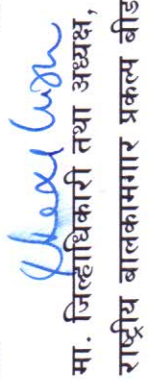 मा. जिल्हाधिकारी तथा अध्यक्ष,
राष्ट्रीय बालकामगार प्रकल्प बीड